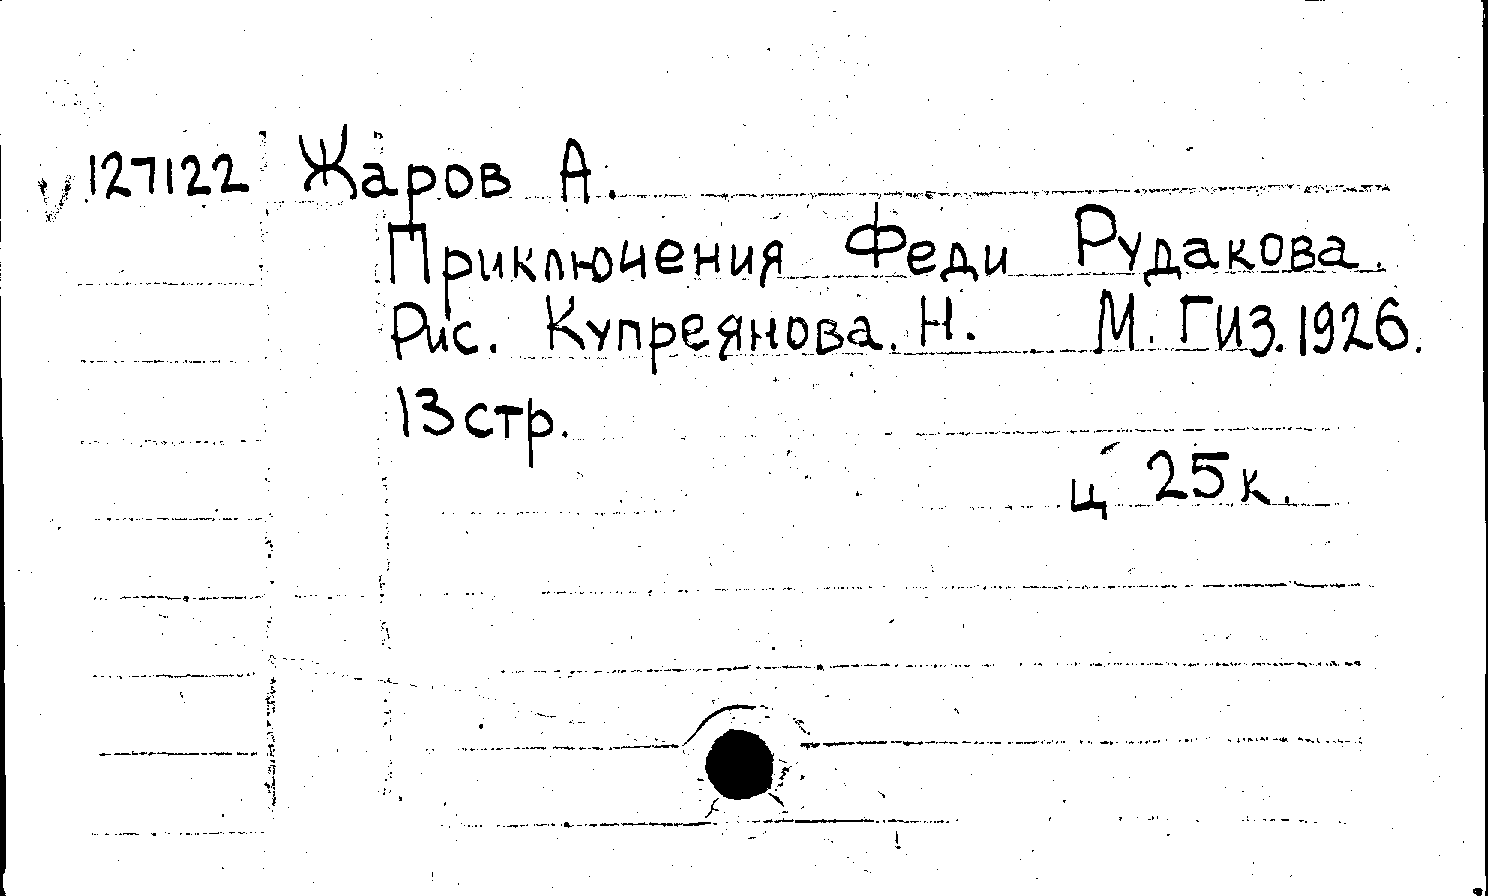 V 127122 Жаров А.
Приключения Феди Рудакова.
Рис. Купреянова. Н. М. ГИЗ. 1926.
13 стр.
ц 25 к.